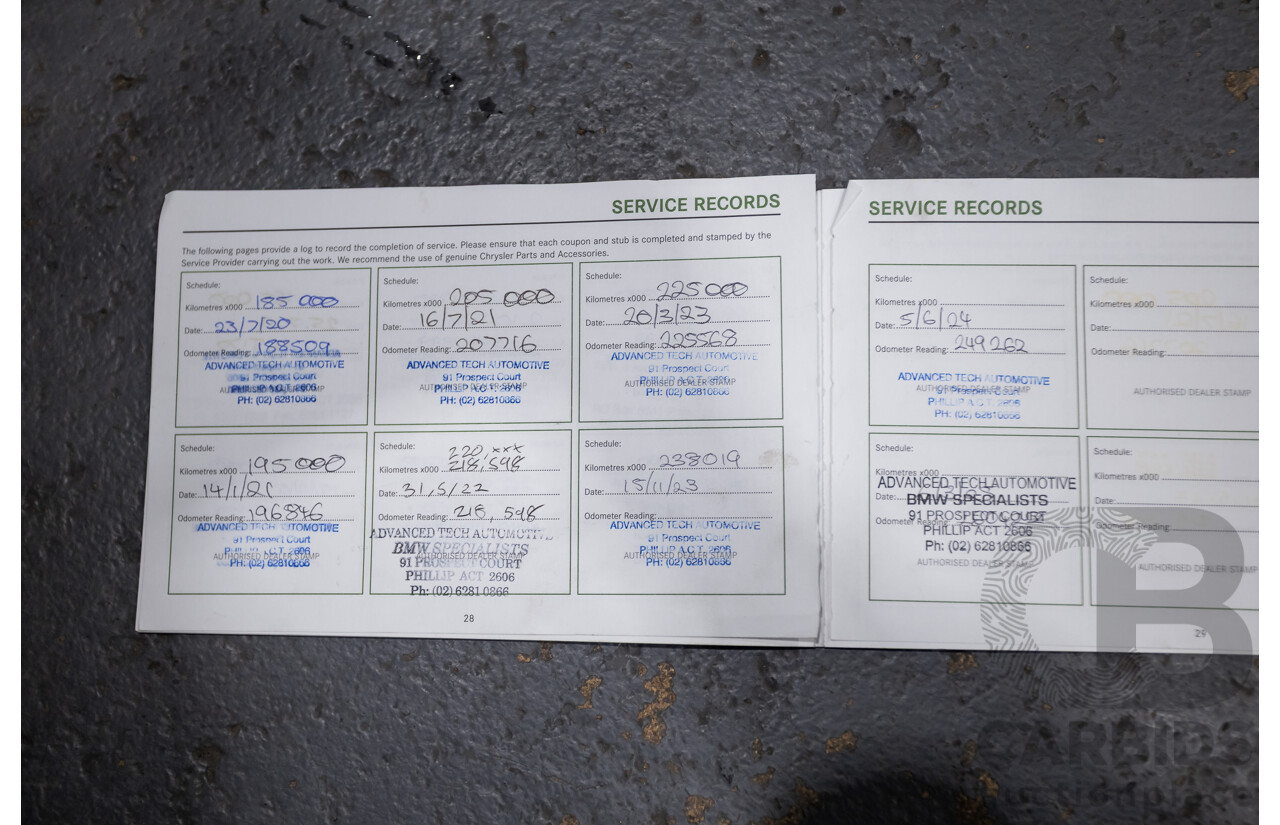 SERVICE RECORDS
The following pages provide a log to record the completion of service. Please ensure that each coupon and stub is completed and stamped by the
Service Provider carrying out the work. We recommend the use of genuine Chrysler Parts and Accessories.
Schedule:
Kilometres x000 185 000
Date: 23/7/20
Odometer Reading: 188509
ADVANCED TECH AUTOMOTIVE
91 Prospect Court
PHILLIP A.C.T. 2606
AUTHORISED DEALER STAMP
PH: (02) 62810866
Schedule:
Kilometres x000 205 000
Date: 16/7/21
Odometer Reading: 207716
ADVANCED TECH AUTOMOTIVE
91 Prospect Court
PHILLIP A.C.T. 2606
AUTHORISED DEALER STAMP
PH: (02) 62810866
Schedule:
Kilometres x000 225000
Date: 20/3/23
Odometer Reading: 225568
ADVANCED TECH AUTOMOTIVE
91 Prospect Court
PHILLIP A.C.T. 2606
AUTHORISED DEALER STAMP
PH: (02) 62810866
Schedule:
Kilometres x000 195000
Date: 14/1/21
Odometer Reading: 196846
ADVANCED TECH AUTOMOTIVE
91 Prospect Court
PHILLIP A.C.T. 2606
AUTHORISED DEALER STAMP
PH: (02) 62810866
Schedule:
220,xxx
Kilometres x000 218,598
Date: 31,5/22
Odometer Reading: 218,598
ADVANCED TECH AUTOMOTIVE
BMW SPECIALISTS
AUTHORISED DEALER STAMP
91 PROSPECT COURT
PHILLIP ACT 2606
Ph: (02) 6281 0866
Schedule:
Kilometres x000 238019
Date: 15/11/23
Odometer Reading:
ADVANCED TECH AUTOMOTIVE
91 Prospect Court
PHILLIP A.C.T. 2606
AUTHORISED DEALER STAMP
PH: (02) 62810866
28
SERVICE RECORDS
Schedule:
Kilometres x000
Date: 5/6/24
Odometer Reading: 249262
ADVANCED TECH AUTOMOTIVE
AUTHORISED DEALER STAMP
91 Prospect Court
PHILLIP A.C.T. 2606
PH: (02) 62810866
Schedule:
Kilometres x000
Date:
Odometer Reading:
AUTHORISED DEALER STAMP
Schedule:
Kilometres x000
ADVANCED TECH AUTOMOTIVE
Date:
BMW SPECIALISTS
91 PROSPECT COURT
Odometer Reading:
PHILLIP ACT 2606
Ph: (02) 62810866
AUTHORISED DEALER STAMP
Schedule:
Kilometres x000
Date:
Odometer Reading:
AUTHORISED DEALER STAMP
29
CARBIDS